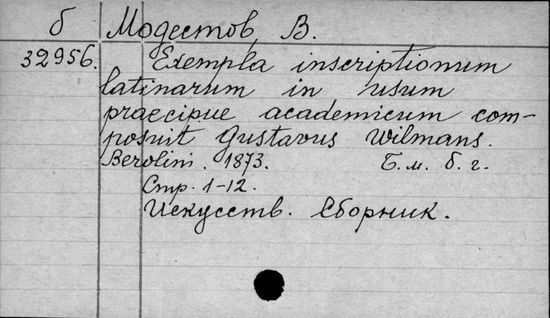 б Модестов, В.
32956. Exempla inscriptionum
latinarum in usum
praecipue academicum com-
posuit Gustavus Wilmans.
Berolini. 1873. Б. м. б. г.
Стр. 1-12.
Искусств. Сборник.